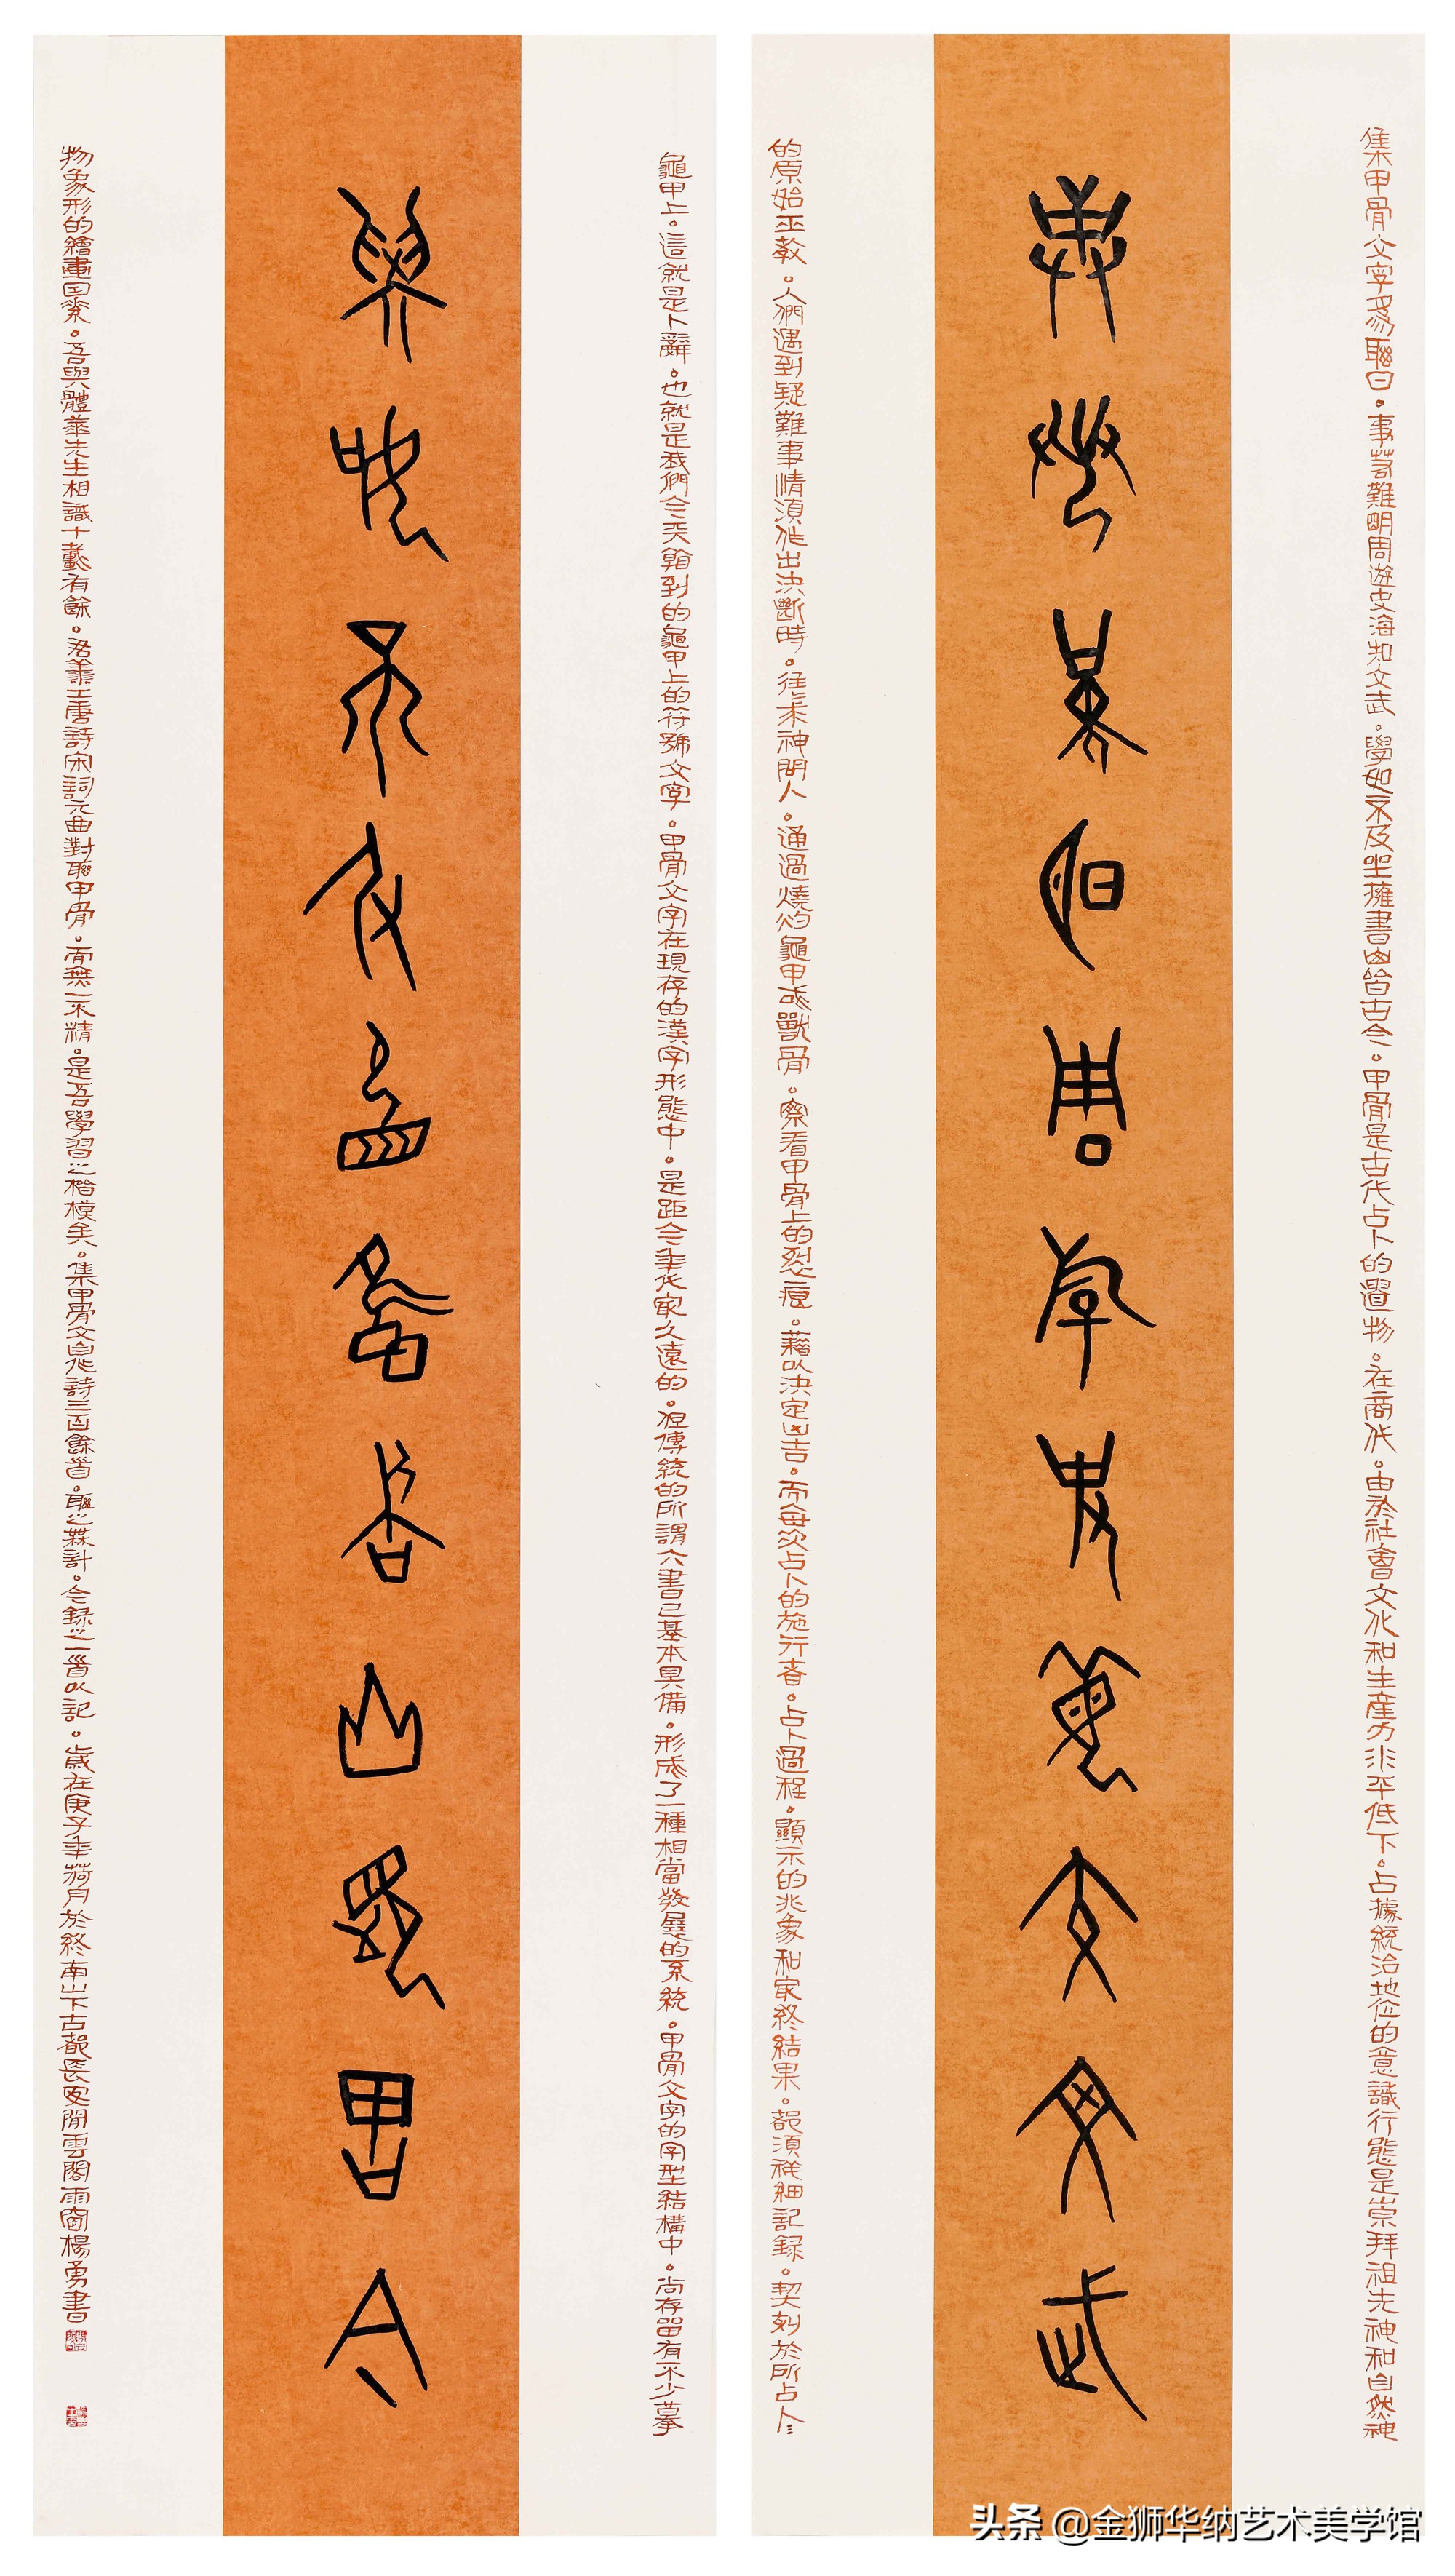 集甲骨文字為聯曰。事若難明周遊史海知文武。學如不及坐擁書山皆古今。甲骨是古代占卜的遺物。在商代。由於社會文化和生產力水平低下。占據統治地位的意識行態是崇拜祖先神和自然神
事若難明周遊史海知文武
的原始巫教。人們遇到疑難事情須作出決斷時。往往求神問人。通過燒灼龜甲或獸骨。察看甲骨上的烈痕。藉以決定凶吉。而每次占卜的施行者。占卜過程。顯示的兆象和最終結果。都須祥細記錄。契刻於所占卜
龜甲上。這就是卜辭。也就是我們今天看到的龜甲上的符號文字。甲骨文字在現存的漢字形態中。是距今年代最久遠的。但傳統的所謂六書已基本具備。形成了一種相當發展的系統。甲骨文字的字型結構中。尚存留有不少摹
學如不及坐擁書山皆古今
物象形的繪畫因素。吾與體華先生相識十載有餘。君善工唐詩宋詞元曲對聯甲骨。而無一不精。是吾學習之楷模矣。集甲骨文自作詩三百餘首。聯之無計。今錄之一首以記。歲在庚子年荷月於終南山下古都長安閒雲閣雨窗楊勇書
头条 @金狮华纳艺术美学馆